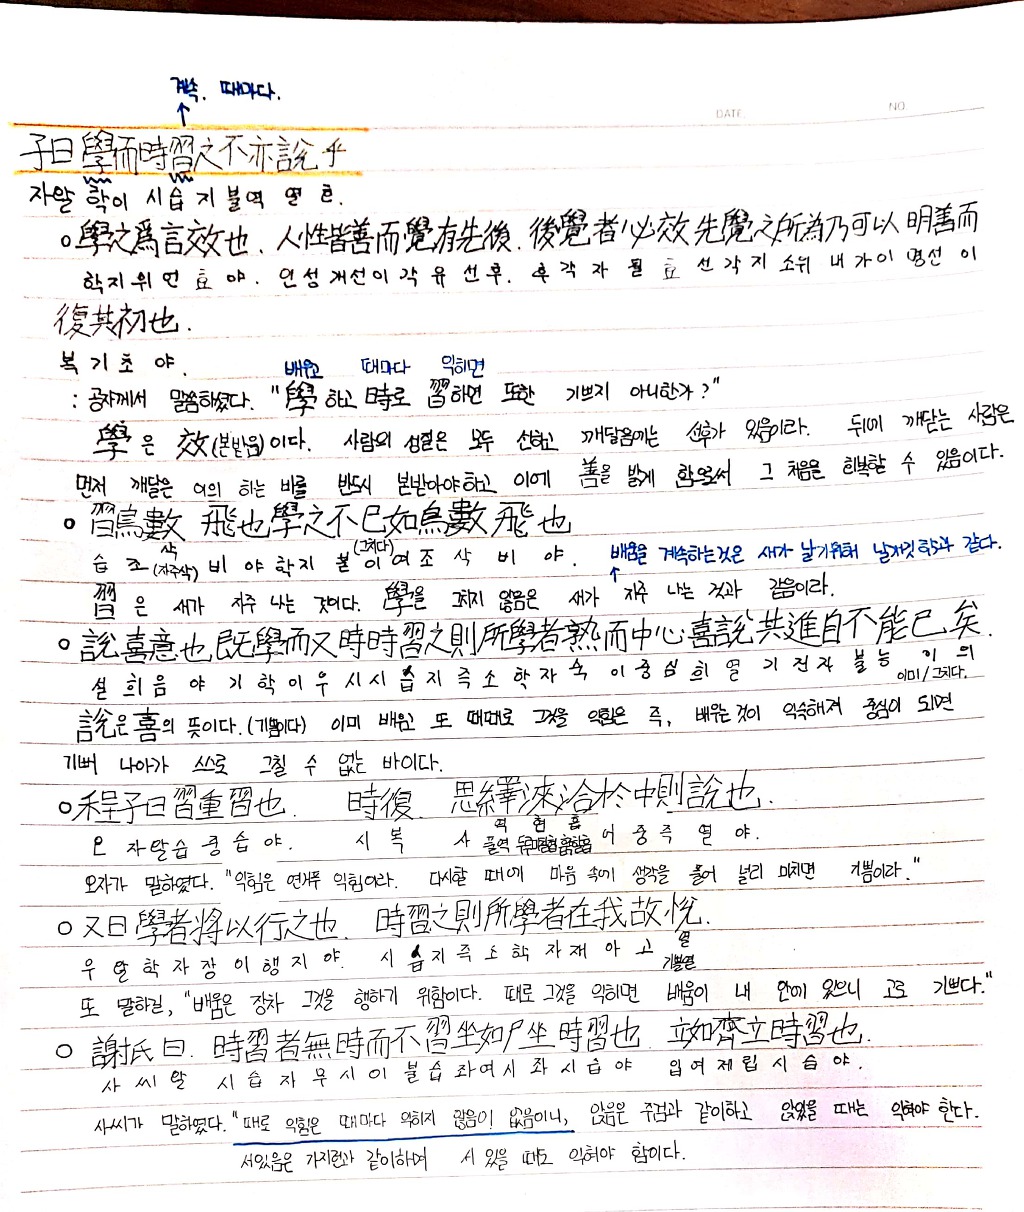 계속. 때마다.
DATE. NO.
子曰 學而時習之不亦說乎
자왈 학이 시습지불역 열호.
○學之爲言效也. 人性皆善而覺有先後. 後覺者必效先覺之所為乃可以明善而
학지위언효야. 인성개선이각유선후. 후각자필효선각지소위내가이명선이
復其初也.
복기초야.
배우고 때마다 익히면
: 공자께서 말씀하셨다. "學하고 時로 習하면 또한 기쁘지 아니한가?"
學은 效(본받음)이다. 사람의 성질은 모두 선하고 깨달음에는 선후가 있음이라. 뒤에 깨닫는 사람은
먼저 깨달은 이의 하는 바를 반드시 본받아야하고 이에 善을 밝게 함으로써 그 처음을 회복할 수 있음이다.
○ 習鳥數 飛也學之不已如鳥數飛也
습조삭(자주삭)비야학지불이(그치다)여조삭비야.
배움을 계속하는것은 새가 날기위해 날개짓 함과 같다.
習은 새가 자주 나는 것이다. 學을 그치지 않음은 새가 자주 나는 것과 같음이라.
○ 說喜意也旣學而又時時習之則所學者熟而中心喜說共進自不能已矣.
설희음야기학이우시시습지즉소학자숙이중심희열기진자불능이의
이미/그치다.
說은喜의 뜻이다.(기쁨이다) 이미 배우고 또 때때로 그것을 익힘은 즉, 배우는것이 익숙해져 중심이 되면
기뻐 나아가 스스로 그칠 수 없는 바이다.
○程子曰習重習也. 時復 思繹浹洽於中則說也.
오자왈습중습야. 시복 사 역 협 흡 어중즉열야.
풀역
오자가 말하였다. "익힘은 연거푸 익힘이라. 다시할 때에 마음 속에 생각을 풀어 널리 미치면 기쁨이라."
○ 又曰學者將以行之也. 時習之則所學者在我故悅.
우왈학자장이행지야. 시습지즉소학자재아고열
기쁠열
또 말하길, "배움은 장차 그것을 행하기 위함이다. 때로 그것을 익히면 배움이 내 안에 있으니 고로 기쁘다."
○ 謝氏曰. 時習者無時而不習坐如尸坐時習也. 立如齊立時習也.
사씨왈 시습자무시이불습좌여시좌시습야 입여제립시습야.
사씨가 말하였다. "때로 익힘은 때마다 익히지 않음이 없음이니, 앉음은 주검과 같이하고 앉았을 때는 익혀야 한다.
서있음은 가지런과 같이하여 서 있을 때도 익혀야 함이다.